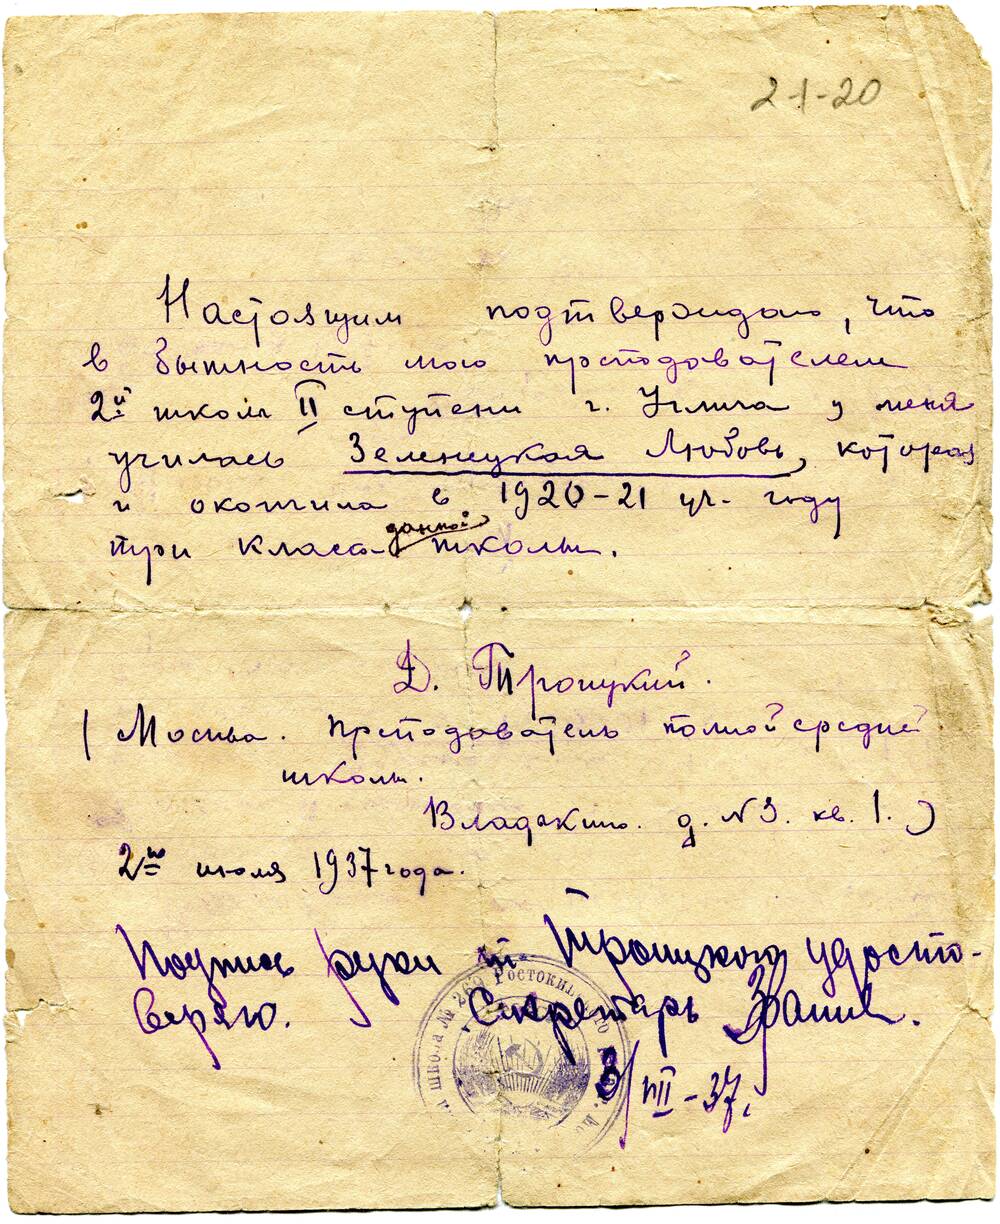 2-1-20
Настоящим подтверждаю, что
в бытность мою преподователем
2й школы II ступени г. Углича у меня
училась Зеленецкая Любовь, которая
и окончила в 1920-21 уч. году
три класса данной школы.
Д. Троицкий.
(Москва. Преподователь полной средней
школы.
Владыкино. д. N 3. кв. 1.)
2го июля 1937 года.
Подпись руки т. Троицкого удосто-
веряю. Секретарь
3/VII-37.
школа № 269 Ростокинского